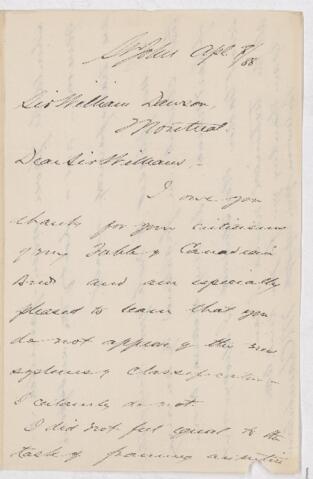 St John Apl 8/88
Sir William Dawson,
Montreal.
Dear Sir William,
I owe you
thanks for your criticisms
of my Table of Canadian
and am especially
pleased to learn that you
do not approve of the new
systems of classification
I certainly do not.
I did not feel equal to the
task of framing an entire